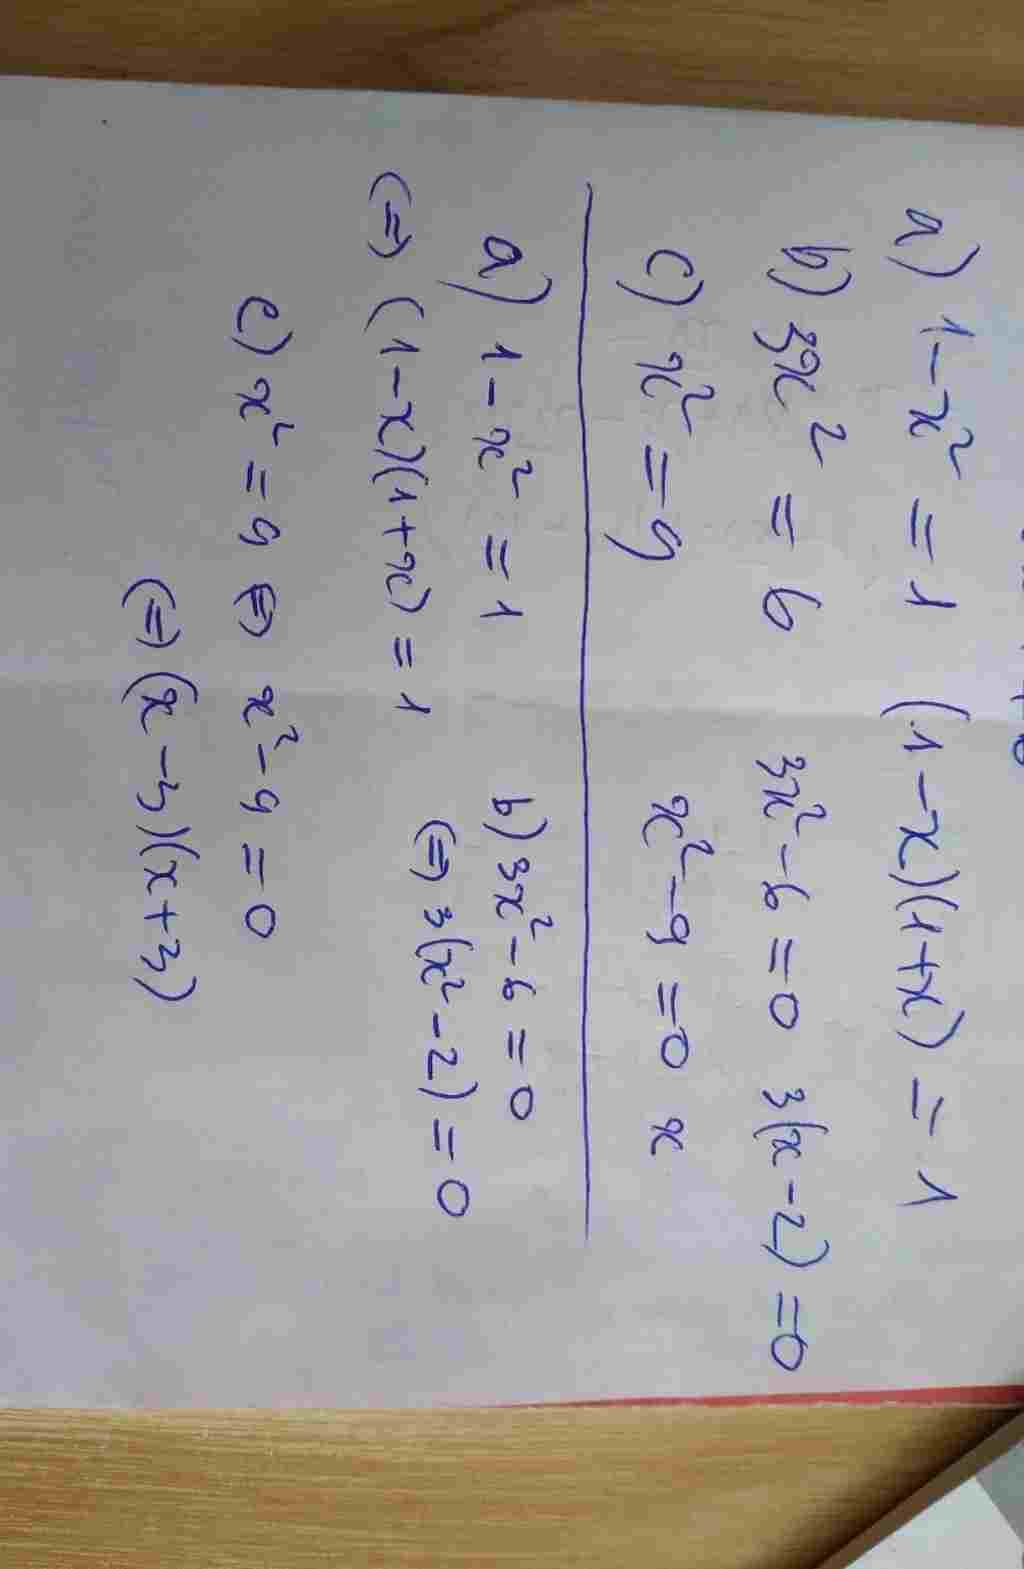 a) 1-x² = 1 (1-x)(1+x) = 1
b) 3x² = 6 3x²-6=0 3(x-2)=0
c) x² = 9 x²-9=0 x
a) 1-x² = 1
(=) (1-x)(1+x) = 1
b) 3x²-6=0
(=) 3(x²-2)=0
c) x² = 9 (=) x²-9=0
(=) (x-3)(x+3)